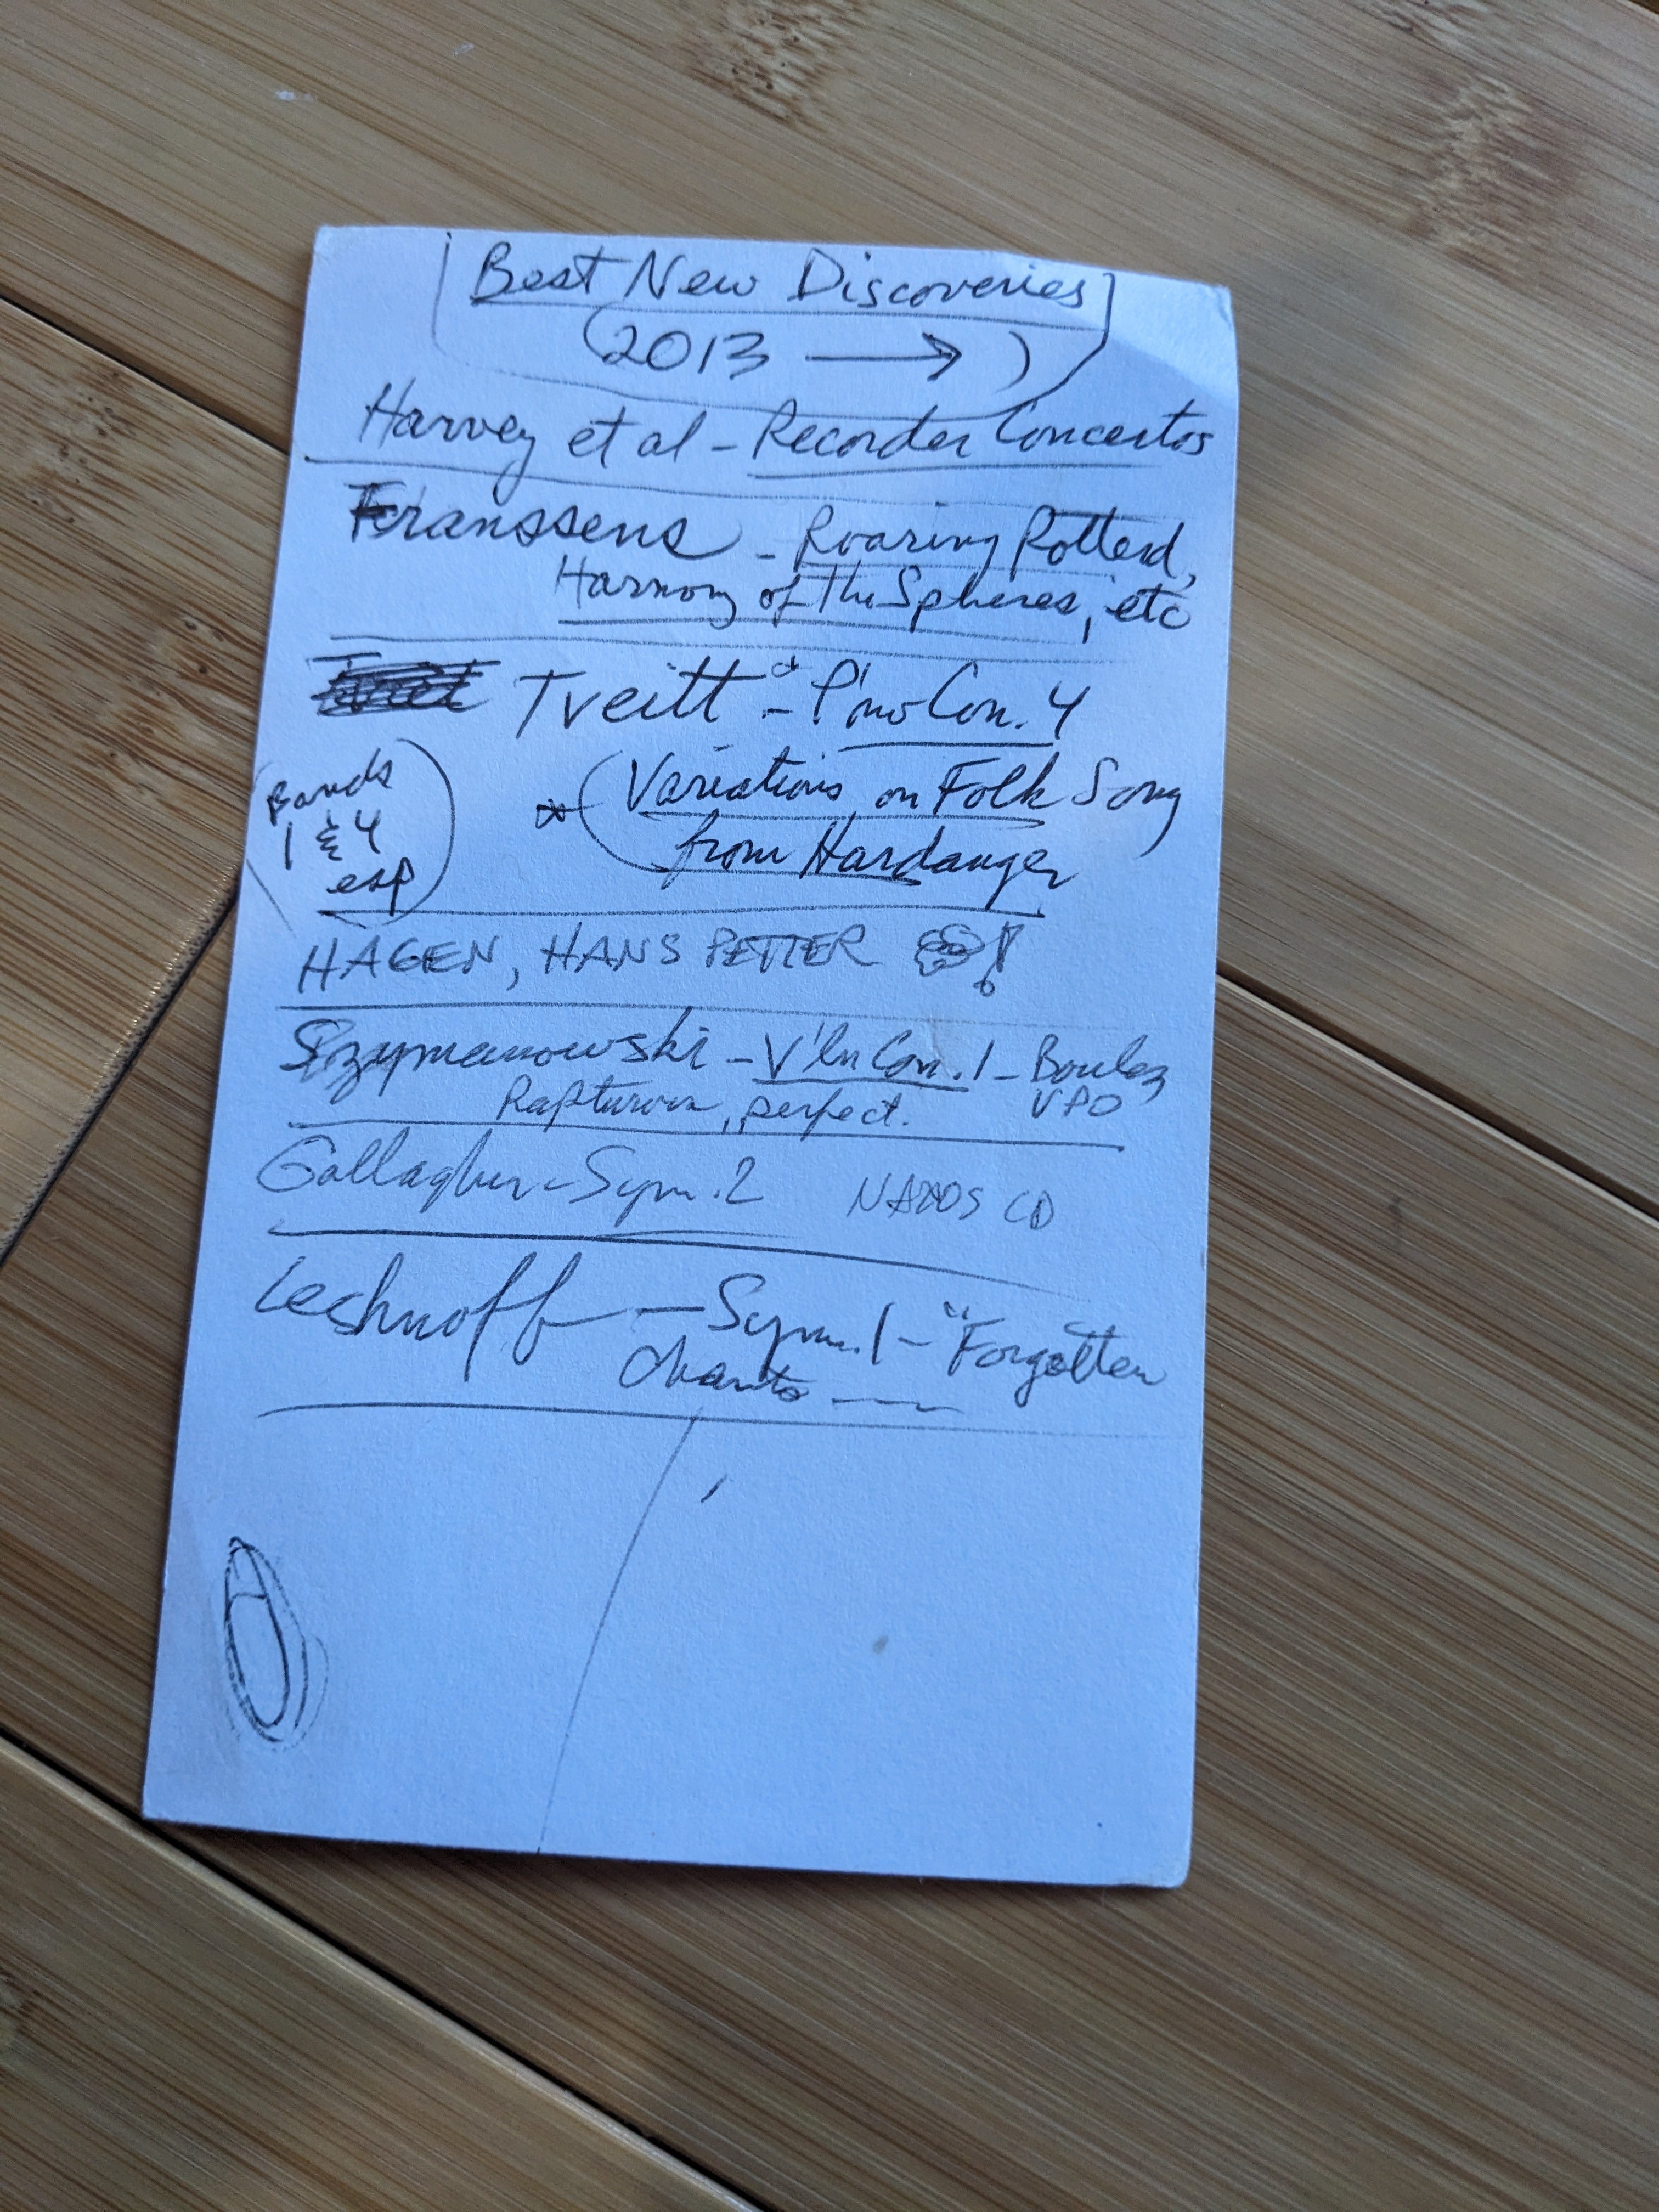 Best New Discoveries
(2013 → )
Harvey et al - Recorder Concertos
Franssens - Roaring Rotterd,
Harmony of the Spheres, etc
Tveitt - P'no Con. 4
(Bands 1 & 4 esp)
* (Variations on Folk Song
from Hardanger
HAGEN, HANS PETTER !
Szymanowski - V'ln Con. 1 - Boulez
Rapturous, perfect. VPO
Gallagher - Sym. 2 NAXOS CD
Leshnoff - Sym. 1 - "Forgotten
Chants